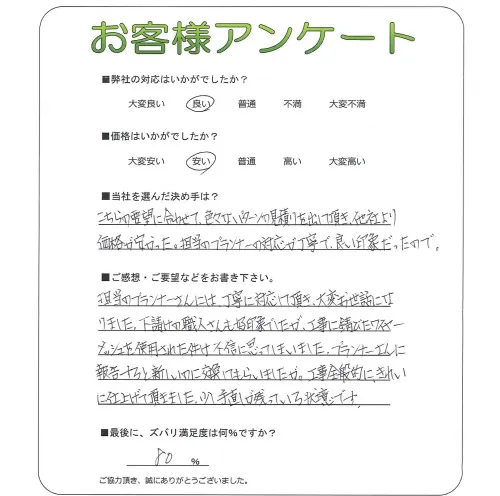 お客様アンケート
■弊社の対応はいかがでしたか?
大変良い 良い 普通 不満 大変不満
■価格はいかがでしたか?
大変安い 安い 普通 高い 大変高い
■当社を選んだ決め手は?
こちらの要望に合わせて、色々なパターンの見積りを出して頂き、他社より
価格が安かった。担当のプランナーの対応が丁寧で、良い印象だったので。
■ご感想・ご要望などをお書き下さい。
担当のプランナーさんには、丁寧に対応して頂き、大変お世話にな
りました。下請けの職人さんも好印象でしたが、工事に錆びたワイヤー
メッシュを使用された件は不信に思ってしまいました。プランナーさんに
報告すると、新しい物に交換してもらいましたが。工事全般的に、きれい
に仕上げて頂きました。少し手直しが残っている状態です。
■最後に、ズバリ満足度は何%ですか?
80 %
ご協力頂き、誠にありがとうございました。